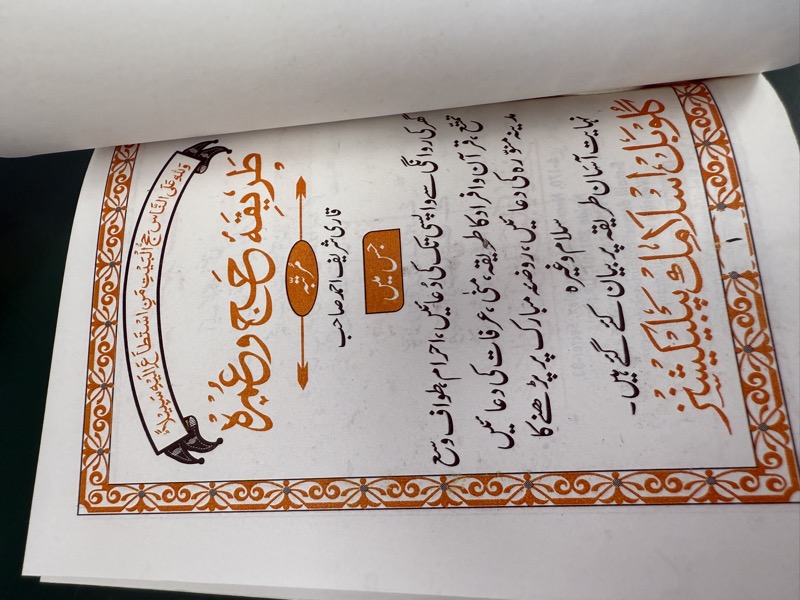 وَلِلّٰهِ عَلَى النَّاسِ حِجُّ الْبَيْتِ مَنِ اسْتَطَاعَ اِلَيْهِ سَبِيْلًا
طَرِیقَہ حَج و عُمرَہ
مرتبہ
قاری شریف احمد صاحب
جس میں
گھر کی روانگی سے واپسی تک کی دُعائیں، احرام، طواف و سعی
تمتع، قرآن و افراد کا طریقہ، منیٰ، عرفات کی دعائیں
مدینہ منورہ کی دعائیں، روضہ مبارک پر پڑھنے کا
سلام وغیرہ
نہایت آسان طریقہ پر بیان کئے گئے ہیں۔
گلوبل اسلامک پبلیکیشنز
۱